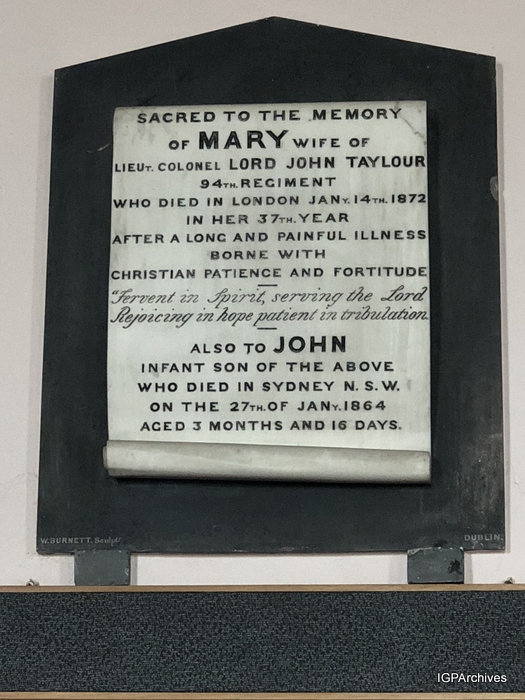 SACRED TO THE MEMORY
OF MARY WIFE OF
LIEUT. COLONEL LORD JOHN TAYLOUR
94TH. REGIMENT
WHO DIED IN LONDON JANY. 14TH. 1872
IN HER 37TH. YEAR
AFTER A LONG AND PAINFUL ILLNESS
BORNE WITH
CHRISTIAN PATIENCE AND FORTITUDE
"Fervent in Spirit, serving the Lord
Rejoicing in hope patient in tribulation.
ALSO TO JOHN
INFANT SON OF THE ABOVE
WHO DIED IN SYDNEY N.S.W.
ON THE 27TH. OF JANY. 1864
AGED 3 MONTHS AND 16 DAYS.
W. BURNETT. Sculpt.
DUBLIN.
IGPArchives